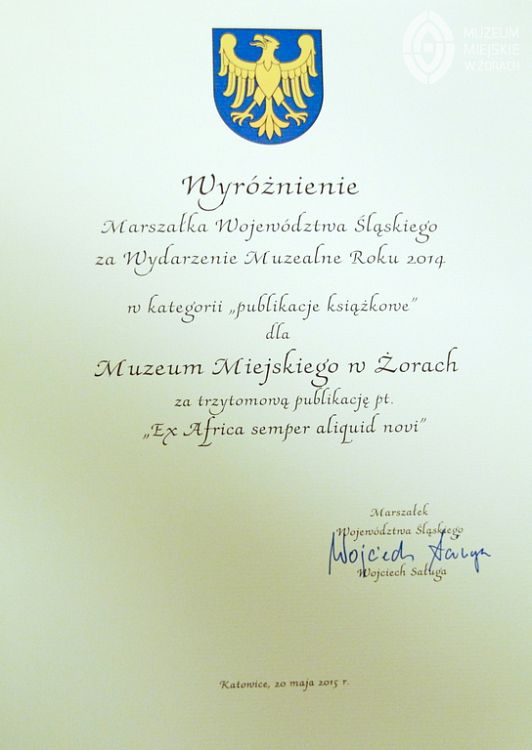 MUZEUM
MIEJSKIE
W ŻORACH
Wyróżnienie
Marszałka Województwa Śląskiego
za Wydarzenie Muzealne Roku 2014
w kategorii „publikacje książkowe”
dla
Muzeum Miejskiego w Żorach
za trzytomową publikację pt.
„Ex Africa semper aliquid novi”
Marszałek
Województwa Śląskiego
Wojciech Saługa
Wojciech Saługa
Katowice, 20 maja 2015 r.